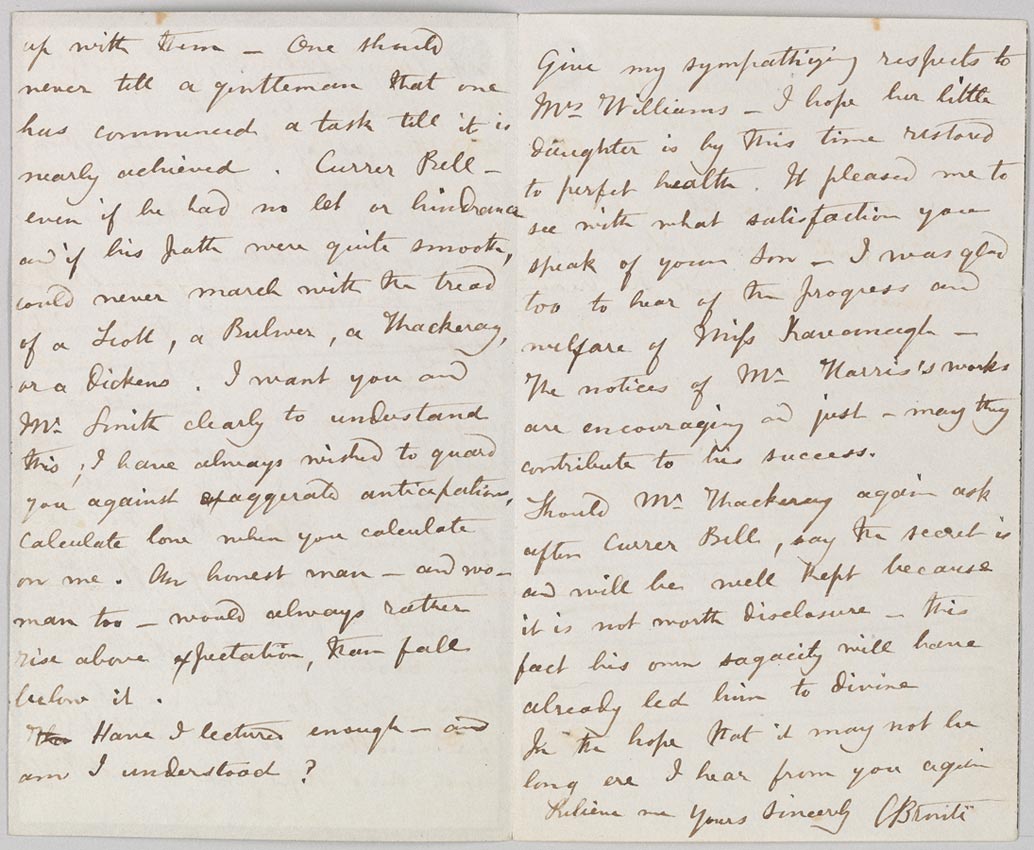 up with them – One should
never tell a gentleman that one
has commenced a task till it is
nearly achieved. Currer Bell –
even if he had no let or hindrance
and if his path were quite smooth,
could never march with the tread
of a Scott, a Bulwer, a Thackeray,
or a Dickens. I want you and
Mr. Smith clearly to understand
this; I have always wished to guard
you against exaggerated anticipations,
calculate low when you calculate
on me. An honest man – and wo-
man too – would always rather
rise above expectation, than fall
below it.
Have I lectured enough – and
am I understood?
Give my sympathizing respects to
Mrs Williams – I hope her little
daughter is by this time restored
to perfect health. It pleased me to
see with what satisfaction you
speak of your Son – I was glad
too to hear of the progress and
welfare of Miss Kavanagh –
The notices of Mr Harris's works
are encouraging and just – may they
contribute to his success.
Should Mr Thackeray again ask
after Currer Bell, say the secret is
and will be well kept because
it is not worth disclosure – this
fact his own sagacity will have
already led him to divine
In the hope that it may not be
long ere I hear from you again
Believe me Yours sincerely C Brontë